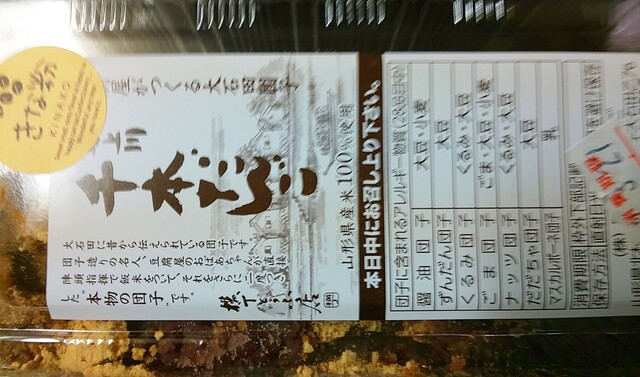 きな粉
KINAKO
屋がつくる大石田団子
上川
千本だんご
大石田に昔から伝えられている団子です
団子造りの名人、豆腐屋のおばあちゃんが直接
陣頭指揮で飯米をついて、それをさらに二度つ
した"本物の団子"です。
横丁とうふ店
山形県産米100%使用
本日中にお召し上り下さい。
団子に含まれるアレルギー物質(28品目中)
醤油団子 大豆・小麦
ずんだん団子 大豆
くるみ団子 くるみ・大豆
ごま団子 ごま・大豆・小麦
ナッツ団子 くるみ・大豆
だだちゃ団子 大豆
マスカルポーネ団子 乳
消費期限 枠外下部記
保存方法 直射日